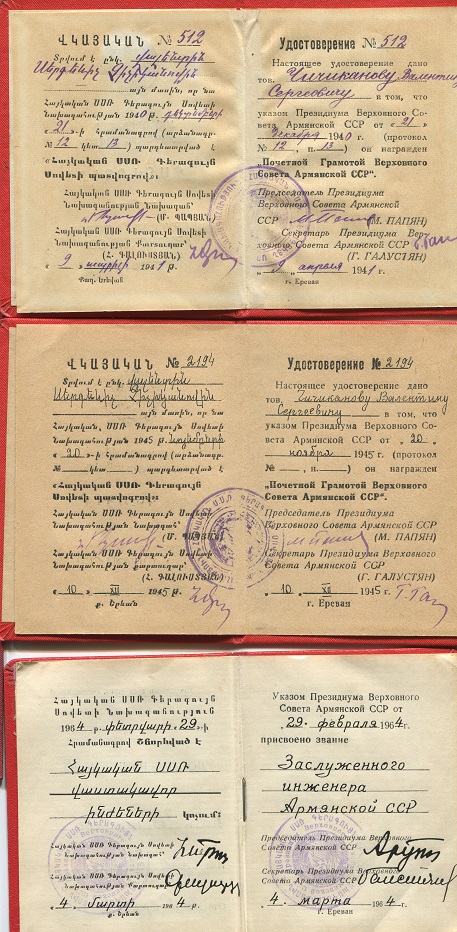 ՎԿԱՅԱԿԱՆ № 512
Տրվում է ընկ. Վալենտին
Սերգեևիչ Չիչիկանովին
այն մասին, որ նա
Հայկական ՍՍՌ Գերագույն Սովետի
Նախագահության 1940 թ. դեկտեմբերի
« 21 »-ի հրամանագրով (արձանագր.
№ 12 կետ 13) պարգևատրված է
«Հայկական ՍՍՌ Գերագույն
Սովետի պատվոգրով»։
Հայկական ՍՍՌ Գերագույն Սովետի
Նախագահության Նախագահ՝
(Մ. ՊԱՊՅԱՆ)
Հայկական ՍՍՌ Գերագույն Սովետի
Նախագահության Քարտուղար՝
(Հ. ԳԱԼՈՒՍՏՅԱՆ)
« 9 » ապրիլի 1941 թ.
Քաղ. Երևան
Удостоверение № 512
Настоящее удостоверение дано
тов. Чичиканову Валентину
Сергеевичу в том, что
указом Президиума Верховного Совета
Армянской ССР от « 21
декабря 1940 г. (протокол
№ 12 п. 13) он награжден
„Почетной Грамотой Верховного
Совета Армянской ССР“.
Председатель Президиума
Верховного Совета Армянской
ССР (М. ПАПЯН)
Секретарь Президиума Верховного
Совета Армянской ССР
(Г. ГАЛУСТЯН)
« 9 » апреля 1941 г.
г. Ереван
ՎԿԱՅԱԿԱՆ № 2194
Տրվում է ընկ. Վալենտին
Սերգեևիչ Չիչիկանովին
այն մասին, որ նա
Հայկական ՍՍՌ Գերագույն Սովետի
Նախագահության 1945 թ. նոյեմբերի
« 20 »-ի հրամանագրով (արձանագր.
№ կետ ) պարգևատրված է
«Հայկական ՍՍՌ Գերագույն
Սովետի պատվոգրով»։
Հայկական ՍՍՌ Գերագույն Սովետի
Նախագահության Նախագահ՝
(Մ. ՊԱՊՅԱՆ)
Հայկական ՍՍՌ Գերագույն Սովետի
Նախագահության Քարտուղար՝
(Հ. ԳԱԼՈՒՍՏՅԱՆ)
« 10 » XII 1945 թ.
ք. Երևան
Удостоверение № 2194
Настоящее удостоверение дано
тов. Чичиканову Валентину
Сергеевичу в том, что
указом Президиума Верховного Со-
вета Армянской ССР от „ 20 „
ноября 1945 г. (протокол
№ , п. ) он награжден
„Почетной Грамотой Верховного
Совета Армянской ССР“.
Председатель Президиума
Верховного Совета Армянской ССР
(М. ПАПЯН)
Секретарь Президиума Верховного
Совета Армянской ССР
(Г. ГАЛУСТЯН)
„ 10 „ XII 1945 г.
г. Ереван
Հայկական ՍՍՌ Գերագույն
Սովետի Նախագահության
1964 թ. փետրվարի « 29 »-ի
Հրամանագրով Շնորհված է
Հայկական ՍՍՌ
վաստակավոր
ինժեների կոչում։
Հայկական ՍՍՌ Գերագույն Սովետի
Նախագահության Նախագահ՝
Հայկական ՍՍՌ Գերագույն Սովետի
Նախագահության Քարտուղար՝
« 4 » մարտի 1964 թ.
ք. Երևան
Указом Президиума Верховного
Совета Армянской ССР от
« 29 » февраля 1964 г.
присвоено звание
Заслуженного
инженера
Армянской ССР
Председатель Президиума Верховного
Совета Армянской ССР
Секретарь Президиума Верховного
Совета Армянской ССР
« 4 » марта 1964 г.
г. Ереван